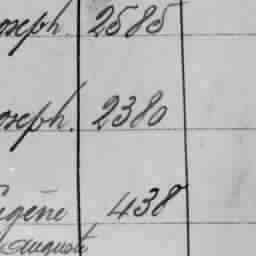 oseph. 2585
oseph. 2380
ugène 438
Auguste